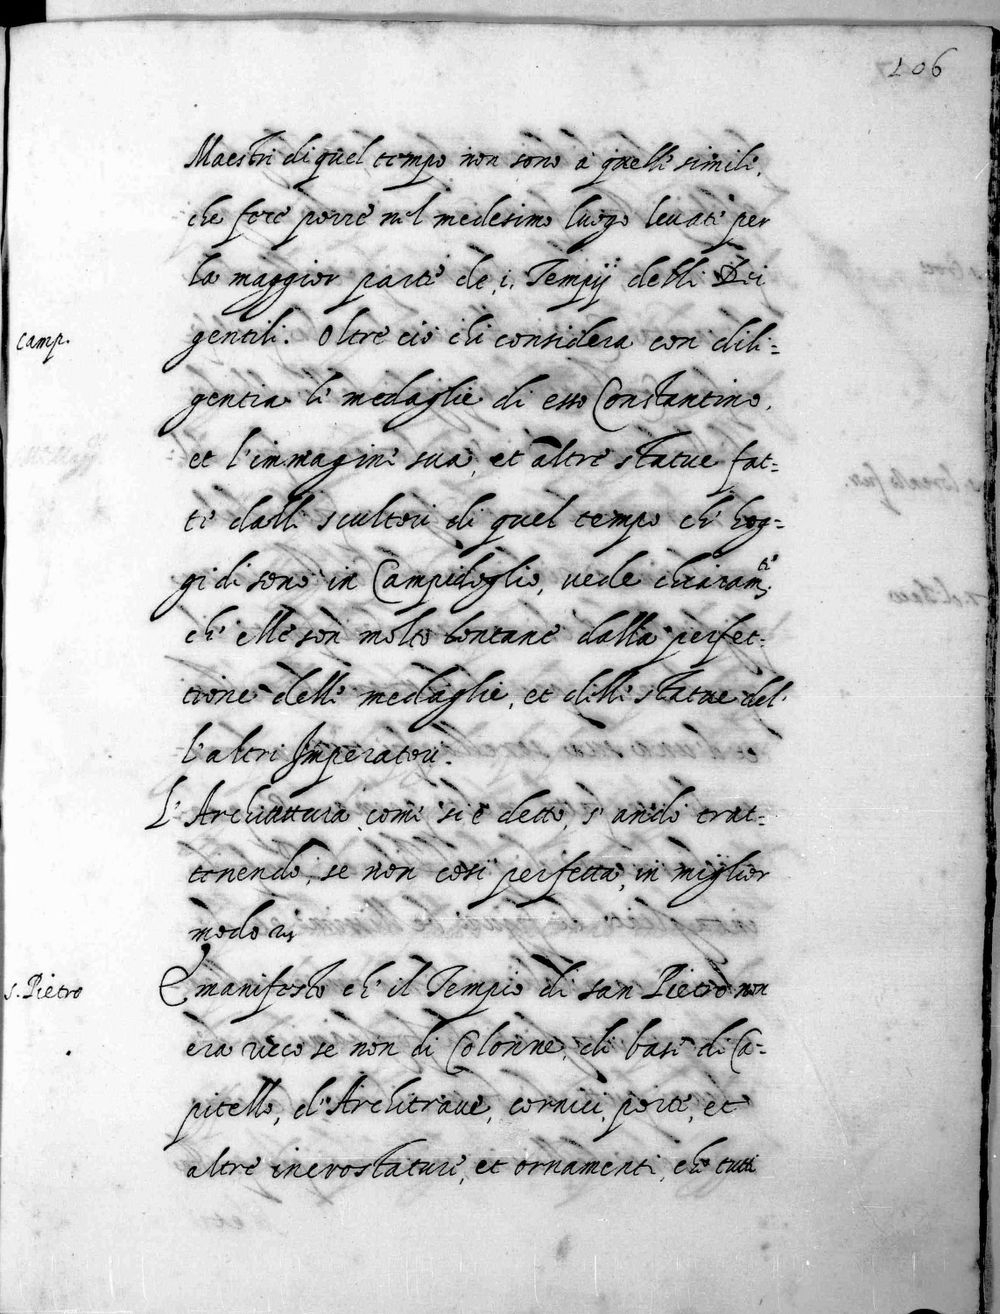 106
Maestri di quel tempo non sono à quelli simili,
che fece porre nel medesimo luogo levati per
la maggior parte de, i, Tempij delli Dei
camp.
gentili. Oltre ciò chi considera con dili=
gentia le medaglie di esso Constantino,
et l'immagine sua, et altre statue fat=
te dalli scultori di quel tempo che hog=
gi di sono in Campidoglio, vede chiaram.te
ch'elle son molto lontane dalla perfet=
tione delle medaglie, et delle statue del
l'altri Imperatori.
L'Architettura, come si è detto, s'andò trat=
tenendo, se non così perfetta, in miglior
modo
s. Pietro
E manifesto ch'il Tempio di san Pietro non
era ricco se non di Colonne, di basi di Ca=
pitello, d'Architrave, cornici, porte, et
altre incrostature, et ornamenti, che tutti